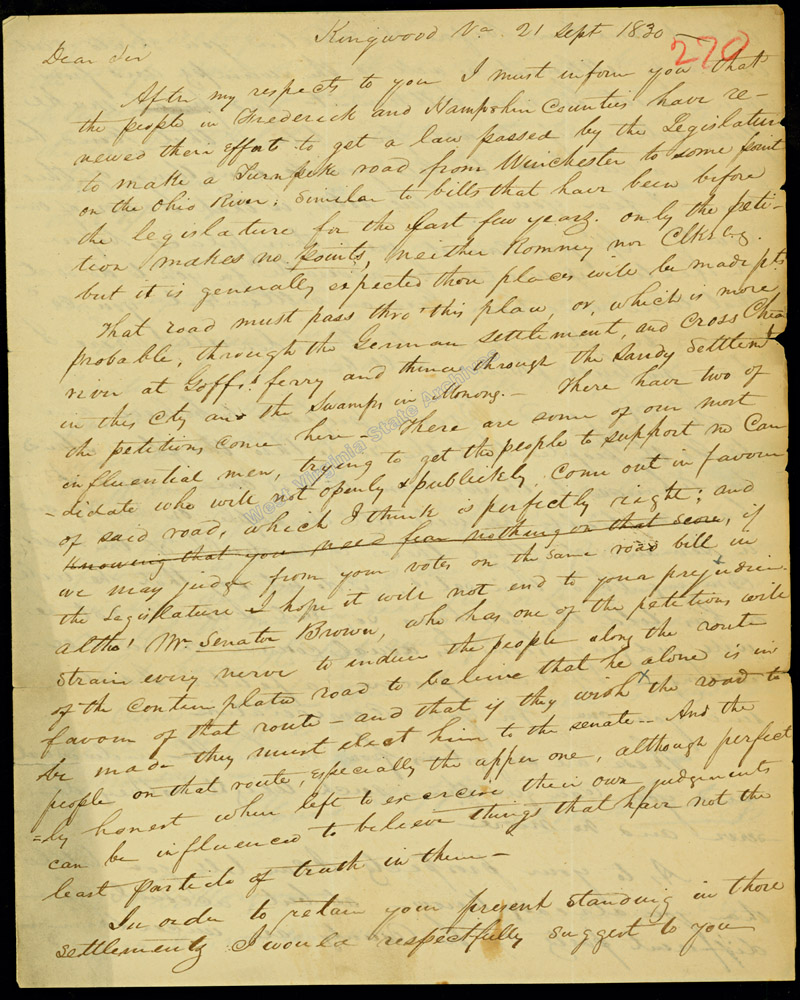 Kingwood Va 21 Sept 1830
270
Dear Sir
After my respects to you I must inform you that
the people in Frederick and Hampshire Counties have re-
newed their effort to get a law passed by the Legislature
to make a Turnpike road from Winchester to some point
on the Ohio River; similar to bills that have been before
the legislature for the last few years. only the peti-
tion makes no points, neither Romney nor Clksbg.
but it is generally expected those places will be made pts
That road must pass thro' this place, or, which is more
probable, through the German settlement, and Cross Cheat
river at Goffs ferry and thence through the Sandy Settlemt
in this Cty and the Swamps in Monong. - There have two of
the petitions come here - There are some of our most
influential men, trying to get the people to support no Can
-didate who will not openly & publickly, come out in favour
of said road, which I think is perfectly right; and
knowing that you need fear nothing on that score, if
we may judge from your votes on the same road bill in
the Legislature I hope it will not end to your prejudice.
altho' Mr. Senator Brown, who has one of the petitions will
strain every nerve to induce the people along the route
of the contemplated road to believe that he alone is in
favour of that route - and that if they wish the road to
be made they must elect him to the senate -- And the
people on that route, especially the upper one, although perfect
=ly honest when left to exercise their own judgements
can be influenced to believe things that have not the
least particle of truth in them -
In order to retain your present standing in those
settlements I would respectfully suggest to you
West Virginia State Archives